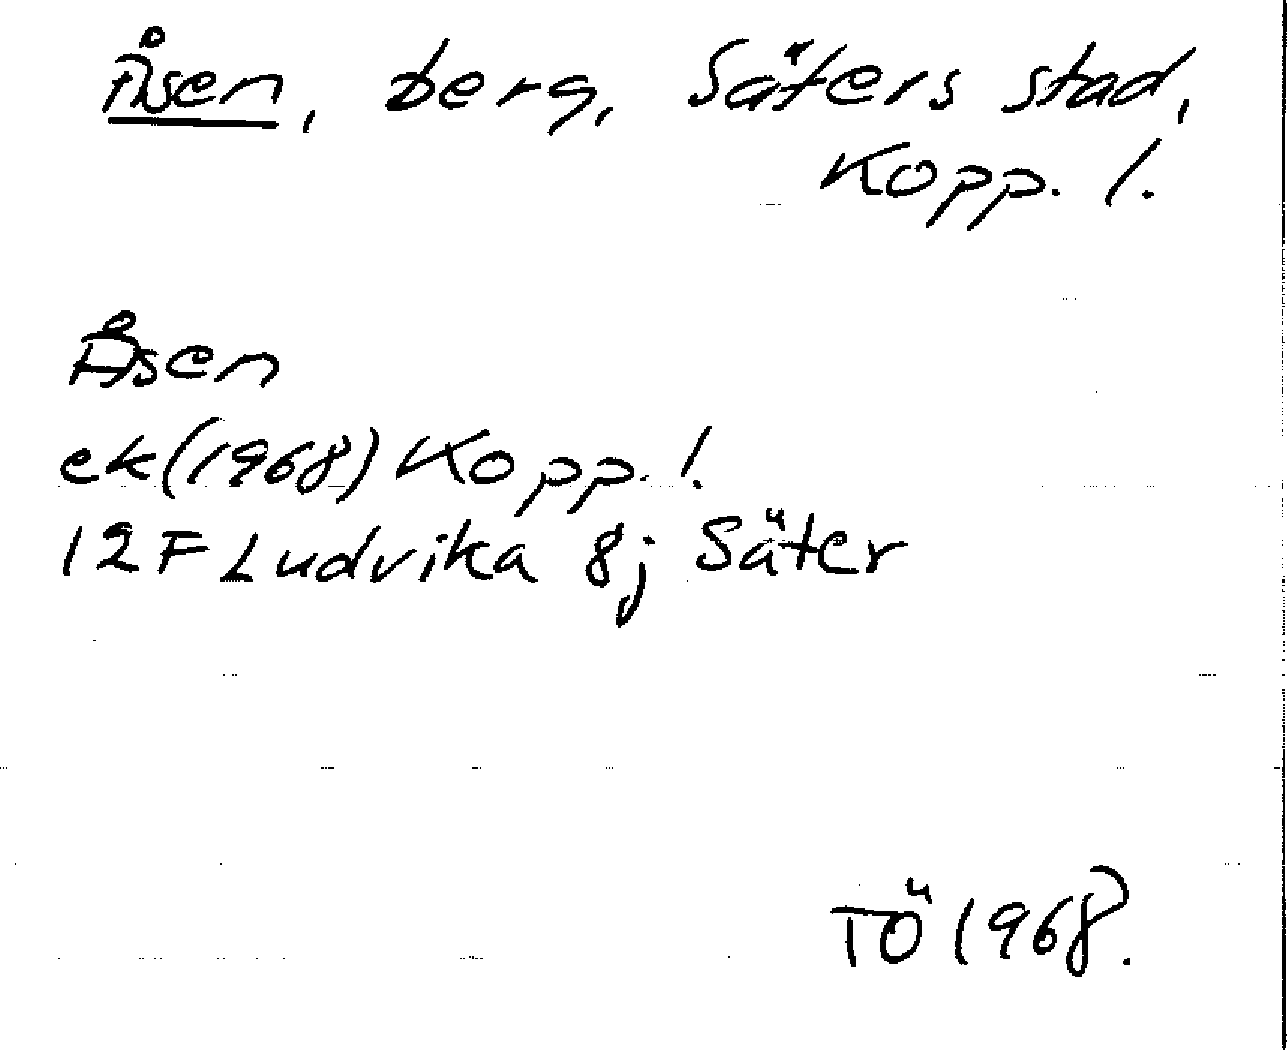 Åsen, berg, Säters stad,
Kopp. l.
Åsen
ek(1968) Kopp. l.
12F Ludvika 8j Säter
TÖ 1968.